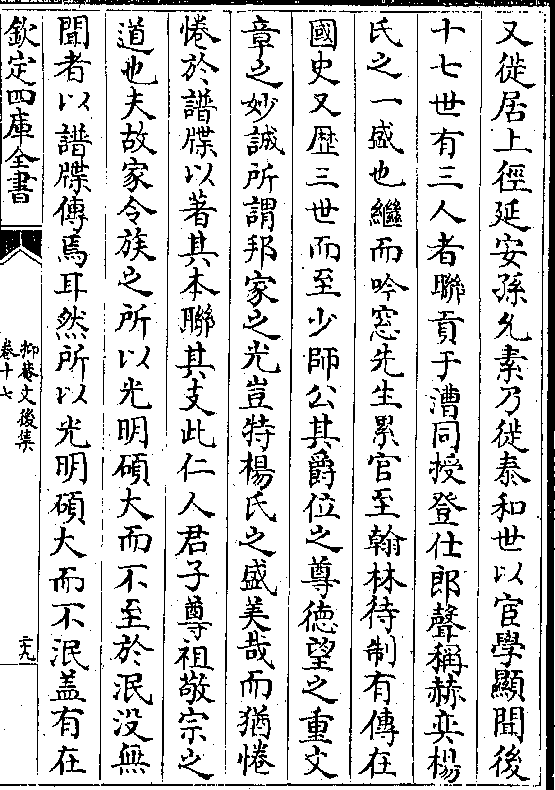 又徙居上徑延安孫允素乃徙泰和世以宦學顯聞後
十七世有三人者聯貢于漕同授登仕郎聲稱赫奕楊
氏之一盛也繼而吟窓先生累官至翰林待制有傳在
國史又歴三世而至少師公其爵位之尊徳望之重文
章之妙誠所謂邦家之光豈特楊氏之盛美哉而猶惓
惓於譜牒以著其本聯其支此仁人君子尊祖敬宗之
道也夫故家令族之所以光明碩大而不至於泯没無
聞者以譜牒傳焉耳然所以光明碩大而不泯盖有在
欽定四庫全書
抑菴文後集
卷十七
二十九